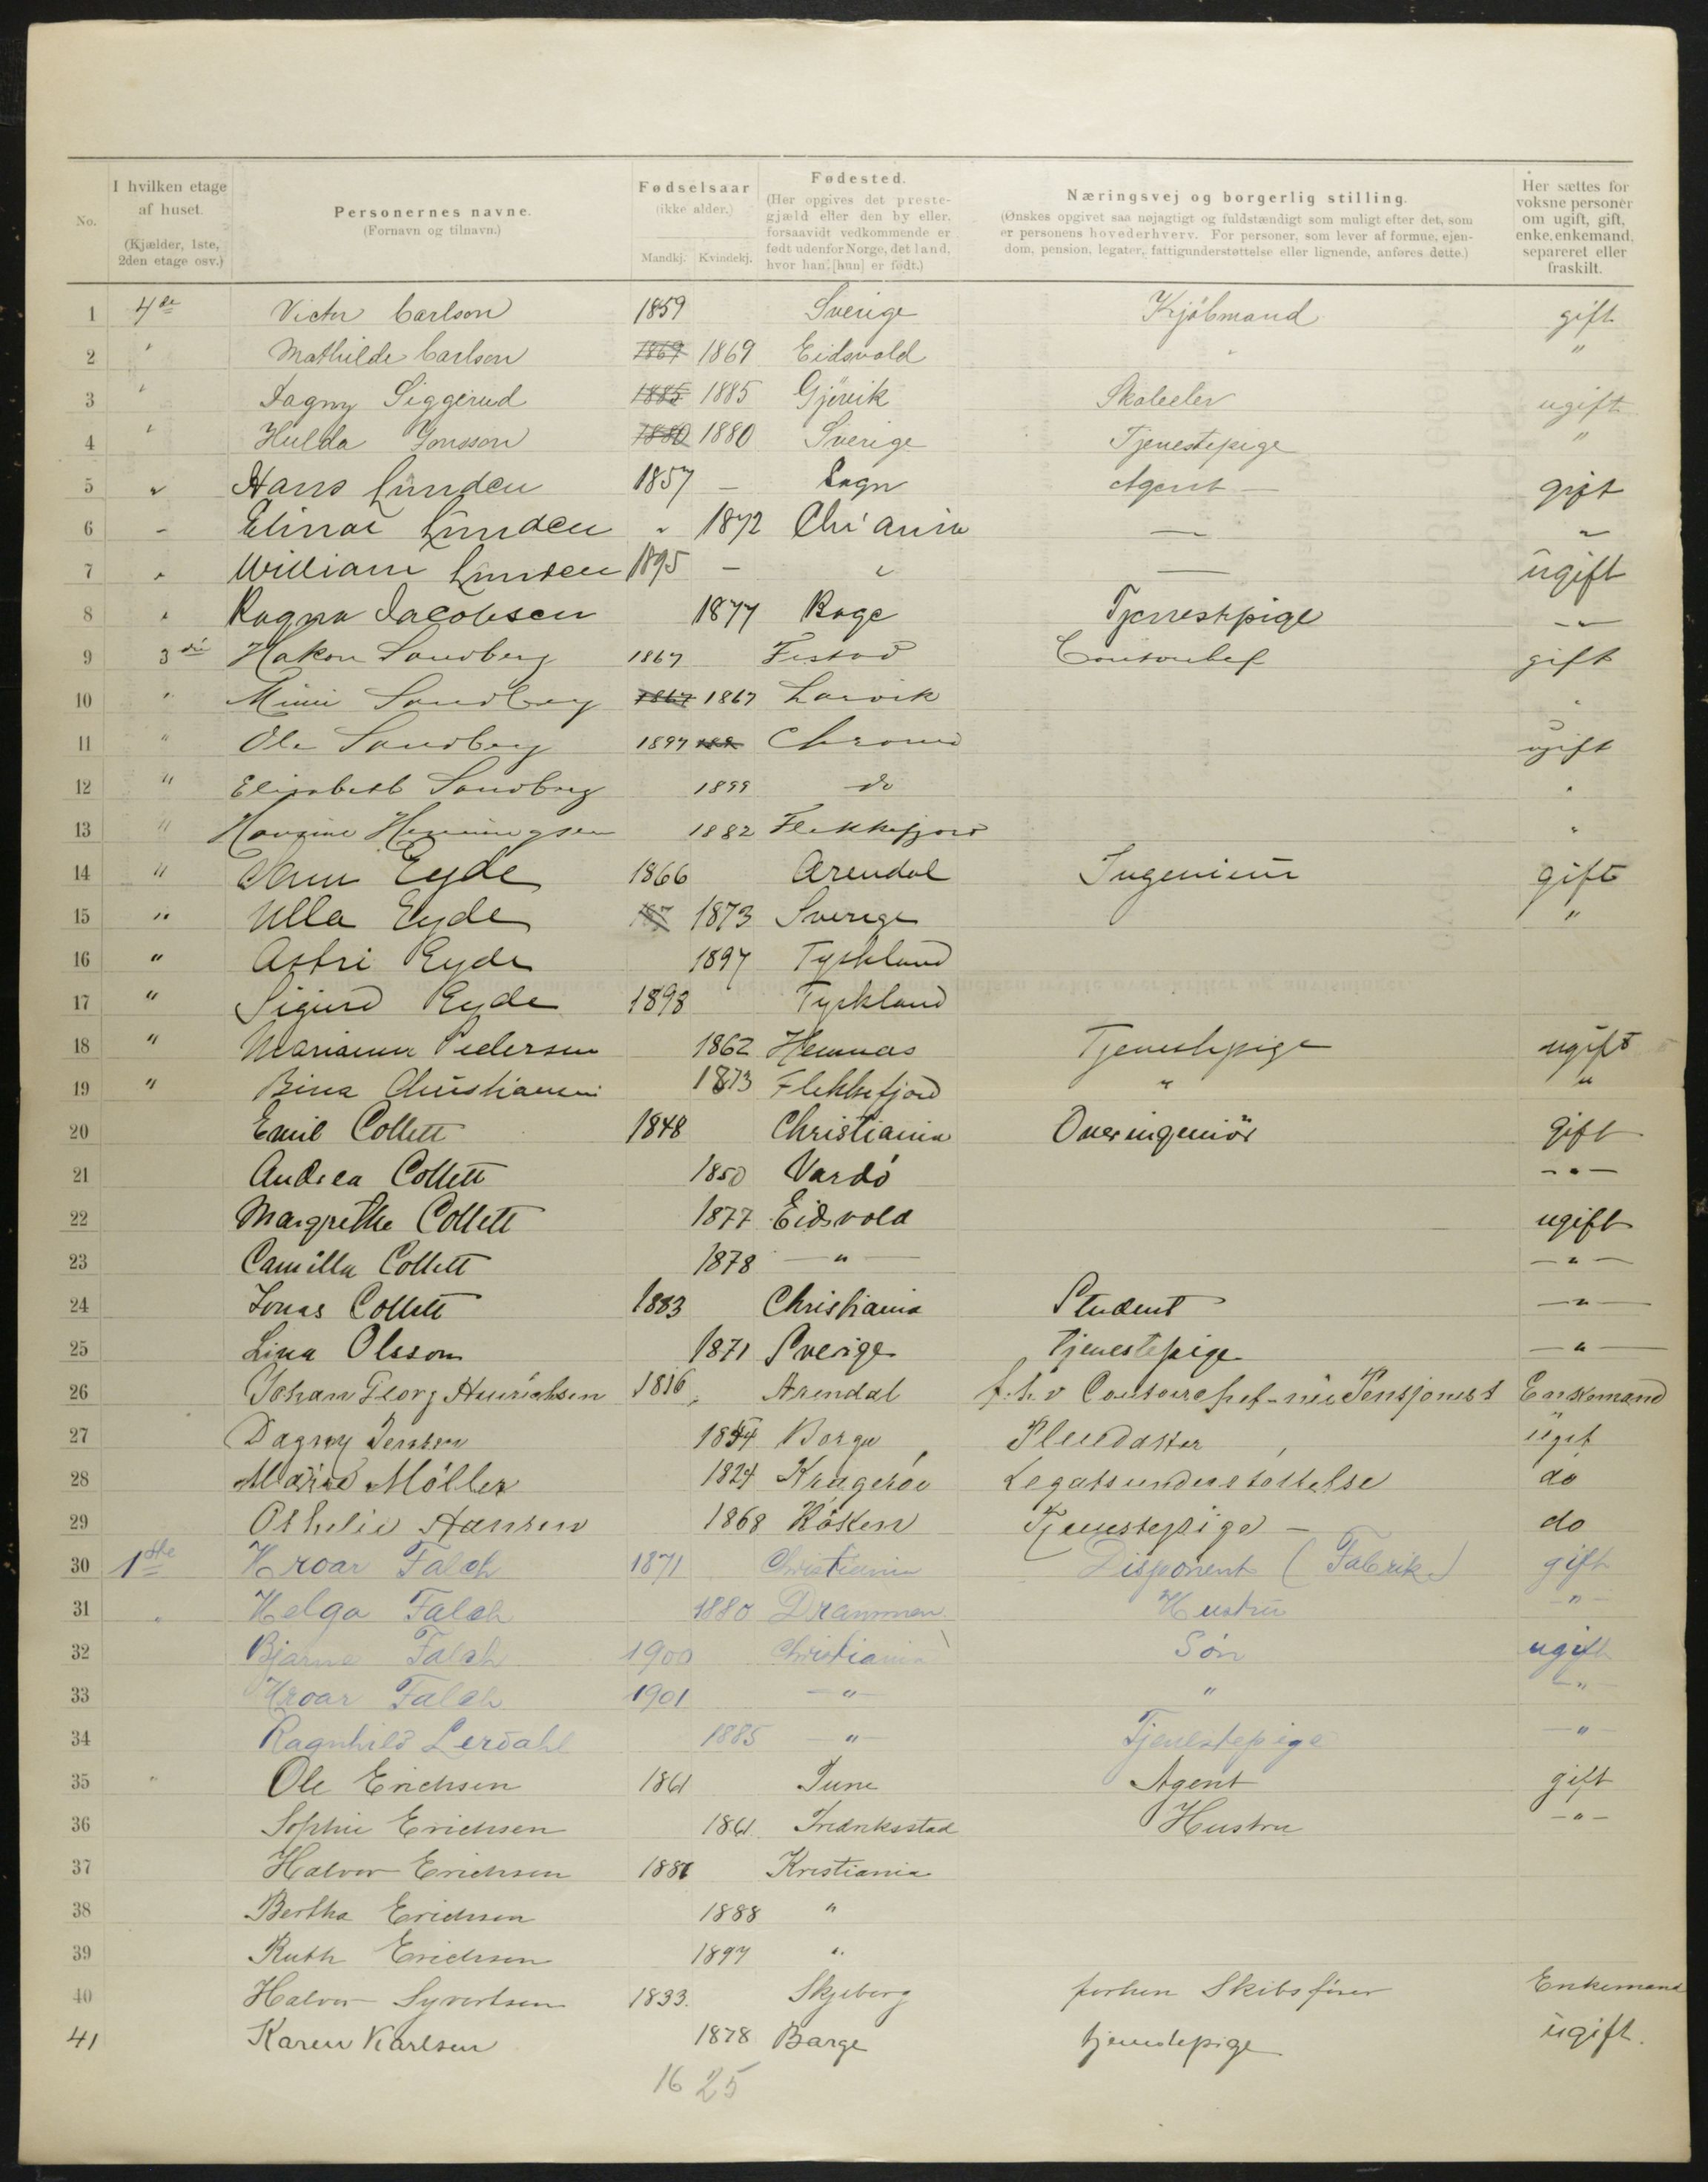 No.
I hvilken etage af huset. (Kjælder, 1ste, 2den etage osv.)
Personernes navne. (Fornavn og tilnavn.)
Fødselsaar (ikke alder.) Mandkj. Kvindekj.
Fødested. (Her opgives det prestegjæld eller den by eller, forsaavidt vedkommende er født udenfor Norge, det land, hvor han [hun] er født.)
Næringsvej og borgerlig stilling. (Ønskes opgivet saa nøjagtigt og fuldstændigt som muligt efter det, som er personens hovederhverv. For personer, som lever af formue, ejendom, pension, legater, fattigunderstøttelse eller lignende, anføres dette.)
Her sættes for voksne personer om ugift, gift, enke, enkemand, separeret eller fraskilt.
1 4de Victor Carlson 1859 Sverige Kjøbmand gift
2 " Mathilde Carlson 1869 1869 Eidsvold " "
3 " Dagny Siggerud 1885 1885 Gjövik Skoleelev ugift
4 " Hulda Jonsson 1880 1880 Sverige Tjenestepige "
5 " Hans Lunden 1857 — Sogn Agent — gift
6 " Elinar Lunden " 1872 Chr'ania — "
7 " William Lunden 1895 — " — ugift
8 " Ragna Jacobsen 1877 Tjenestepige — " —
9 3die Hakon Sandberg 1867 gift
10 " Mimi Sandberg 1867 1867 Larvik "
11 " Ole Sandberg 1897 ugift
12 " Elisabeth Sandberg 1899 do "
13 " Henningsen 1882 Flekkefjord "
14 " Sam Eyde 1866 Arendal Ingeniør gift
15 " Ulla Eyde 187 1873 Sverige "
16 " Astri Eyde 1897 Tyskland
17 " Sigurd Eyde 1898 Tyskland
18 " Marianne Pedersen 1862 Hemnas Tjenestepige ugift
19 " Bina Christiansen 1873 Flekkefjord " "
20 Emil Collett 1848 Christiania Overingeniør gift
21 Andrea Collett 1850 Vardö — " —
22 Margrethe Collett 1877 Eidsvold ugift
23 Camilla Collett 1878 — " — — " —
24 Jonas Collett 1883 Christiania Student — " —
25 Lina Olsson 1871 Sverige Tjenestepige — " —
26 Johan Georg Henrichsen 1816 Arendal f.h.v Contorchef - nu Pensjonist Enkemand
27 Dagny Jensen 1854 Borge ugift
28 Marie Möller 1824 Kragerøe Legatsunderstøttelse do
29 Othelie Hansen 1868 Röken Tjenestepige — do
30 1ste Hroar Falch 1871 Christiania Disponent (Fabrik) gift
31 " Helga Falch 1880 Drammen Hustru — " —
32 Bjarne Falch 1900 Christiania Søn ugift
33 Hroar Falch 1901 — " — " — " —
34 Ragnhild Lerdahl 1885 — " — Tjenestepige — " —
35 " Ole Erichsen 1861 Tune Agent gift
36 Sophie Erichsen 1861 Fredriksstad Hustru — " —
37 Halvor Erichsen 1886 Kristiania
38 Bertha Erichsen 1888 "
39 Ruth Erichsen 1897 "
40 Halvor Syvertsen 1833. Skjeberg forhen Skibsfører Enkemand
41 Karen Karlsen 1878 Borge tjenestepige ugift.
16 25